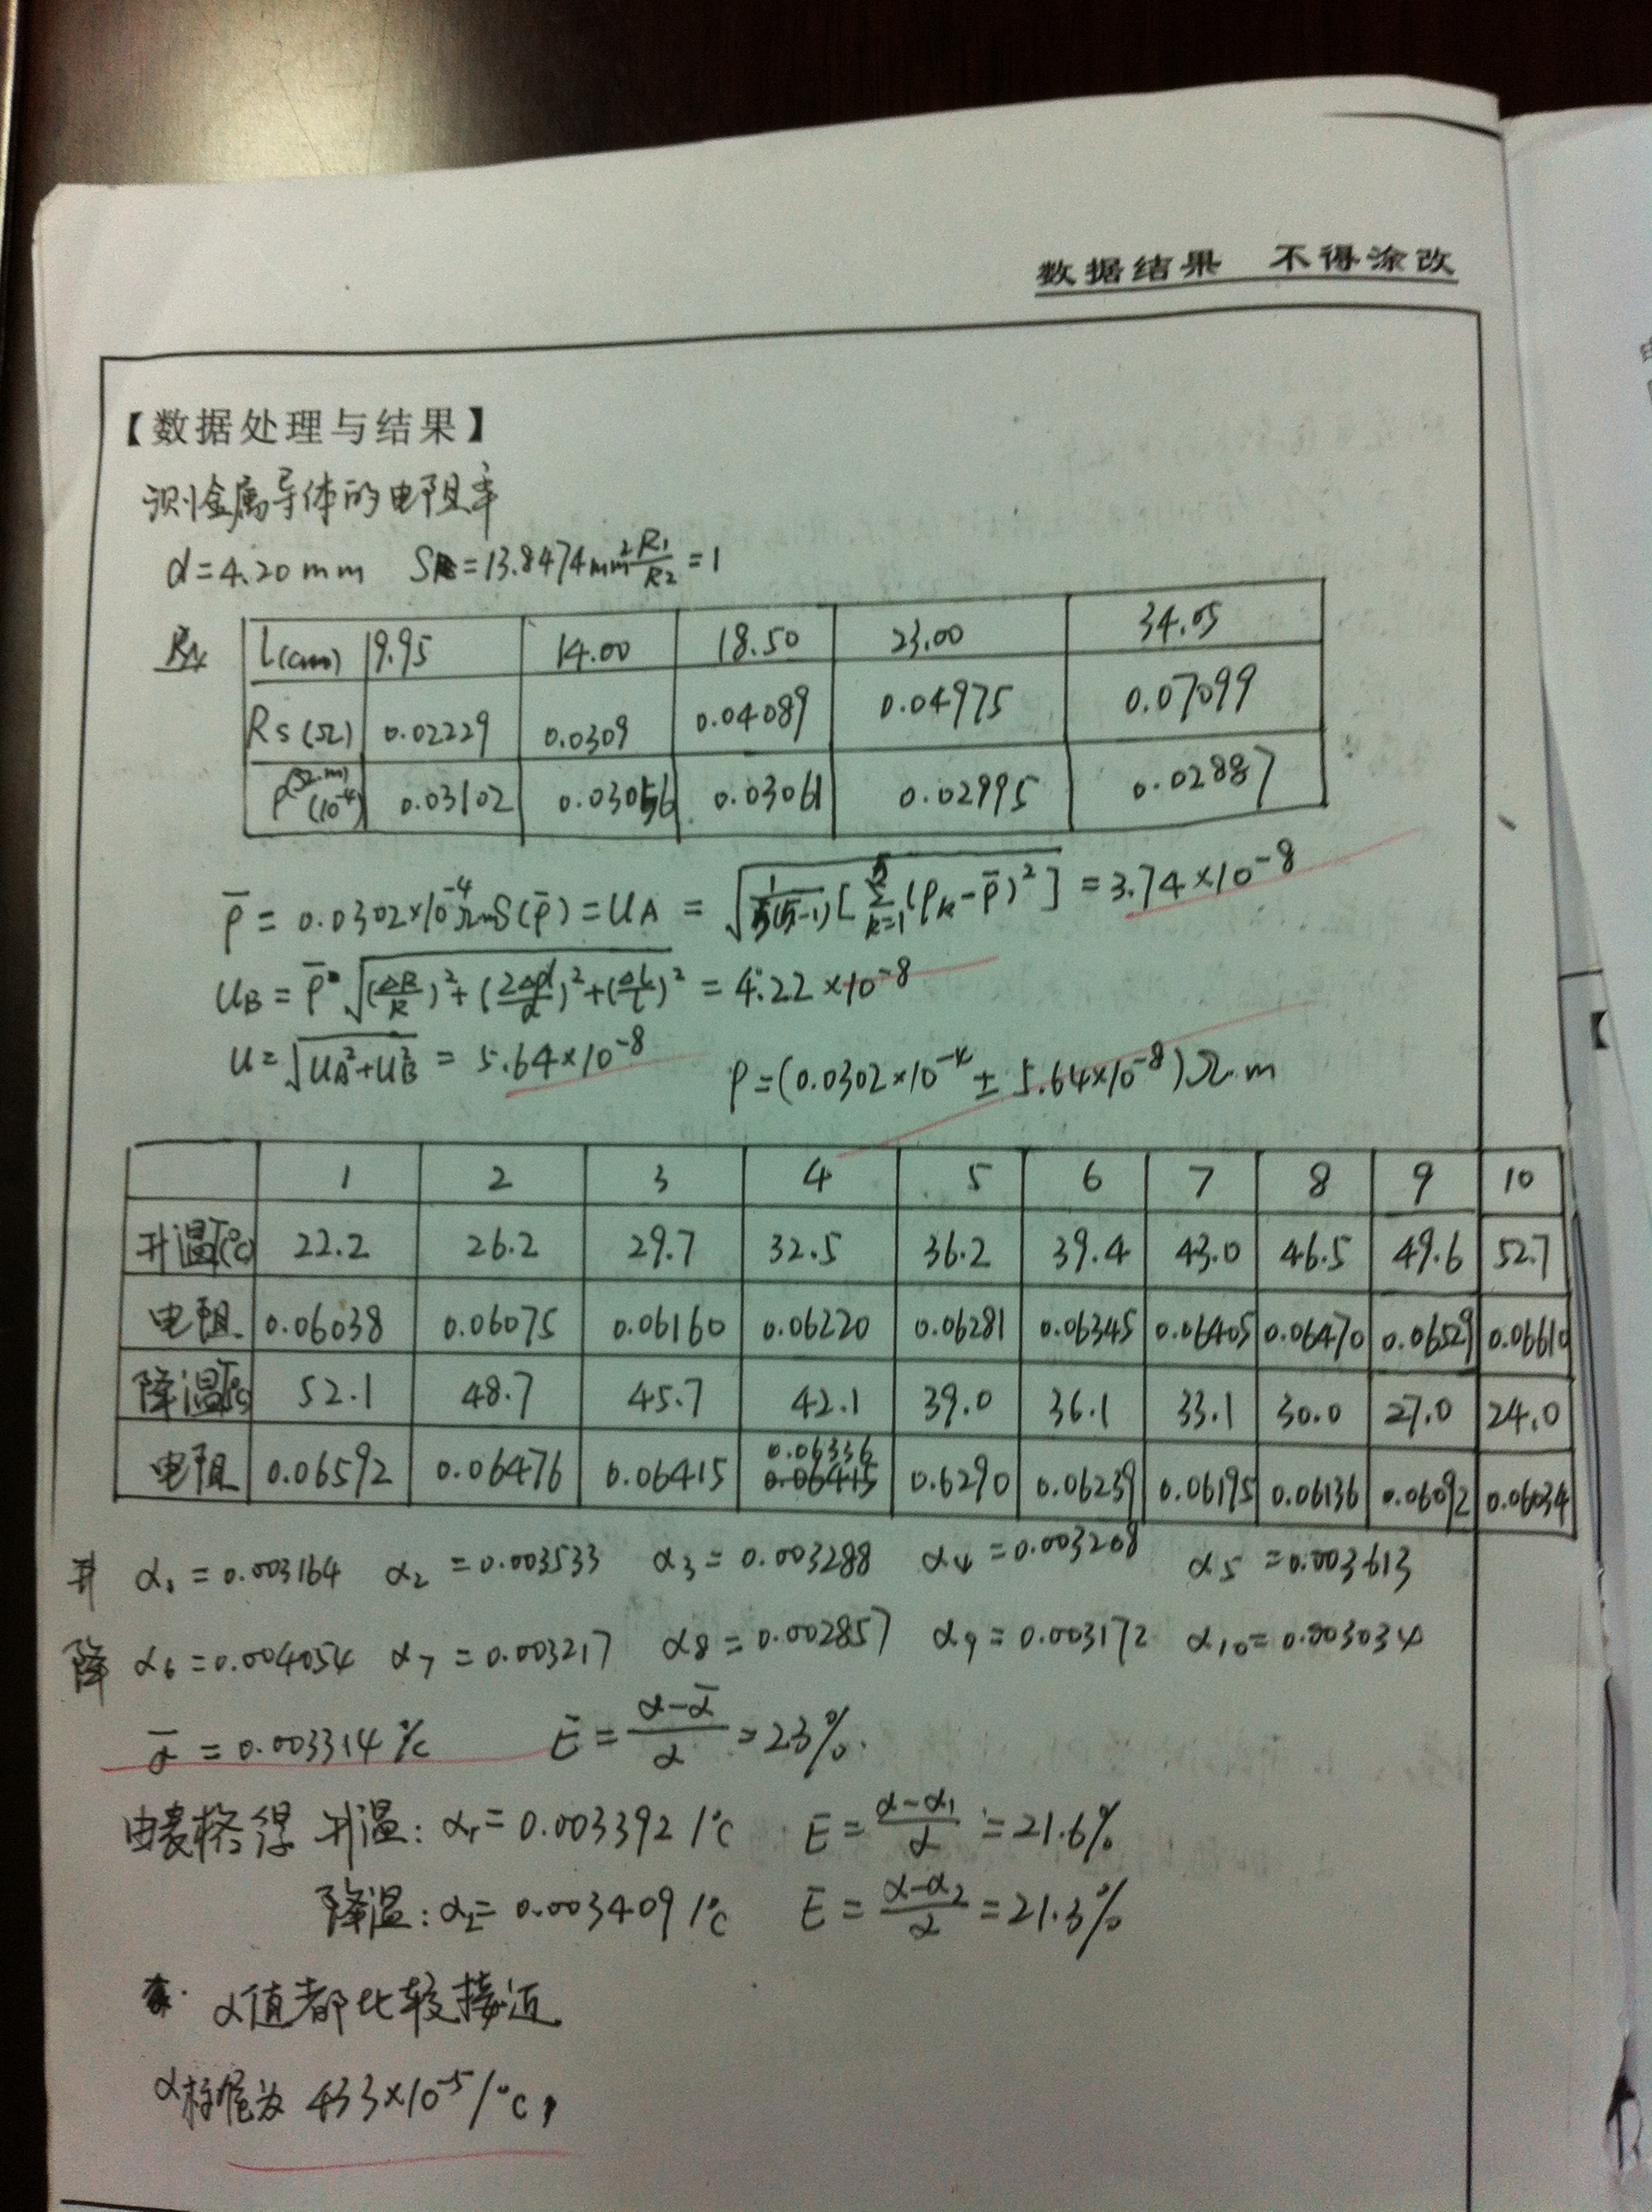 数据结果 不得涂改
【数据处理与结果】
测金属导体的电阻率
d=4.20mm S=13.8474mm² R₁/R₂=1
Rx
L(cm) 9.95 14.00 18.50 23.00 34.05
Rs(Ω) 0.02229 0.0309 0.04089 0.04975 0.07099
ρ(Ω.m)(10⁻⁴) 0.03102 0.03056 0.03061 0.02995 0.02887
ρ̄=0.0302×10⁻⁴Ωm S(ρ̄)=UA=√(1/(5(5-1))[Σ(k=1→5)(ρk-ρ̄)²])=3.74×10⁻⁸
UB=ρ̄·√((ΔR/R)²+(2Δd/d)²+(ΔL/L)²)=4.22×10⁻⁸
U=√(UA²+UB²)=5.64×10⁻⁸ ρ=(0.0302×10⁻⁴±5.64×10⁻⁸)Ω.m
1 2 3 4 5 6 7 8 9 10
升温T(℃) 22.2 26.2 29.7 32.5 36.2 39.4 43.0 46.5 49.6 52.7
电阻 0.06038 0.06075 0.06160 0.06220 0.06281 0.06345 0.06405 0.06470 0.06529 0.06610
降温T(℃) 52.1 48.7 45.7 42.1 39.0 36.1 33.1 30.0 27.0 24.0
电阻 0.06592 0.06476 0.06415 0.06336 0.6290 0.06239 0.06195 0.06136 0.06092 0.06034
升 α₁=0.003164 α₂=0.003533 α₃=0.003288 α₄=0.003208 α₅=0.003613
降 α₆=0.004054 α₇=0.003217 α₈=0.002857 α₉=0.003172 α₁₀=0.003034
ᾱ=0.003314/℃ E=(α-ᾱ)/α=23%.
由表格得 升温:α₁=0.003392/℃ E=(α-α₁)/α=21.6%
降温:α₂=0.003409/℃ E=(α-α₂)/α=21.3%
α值都比较接近
α标准为 433×10⁻⁵/℃,